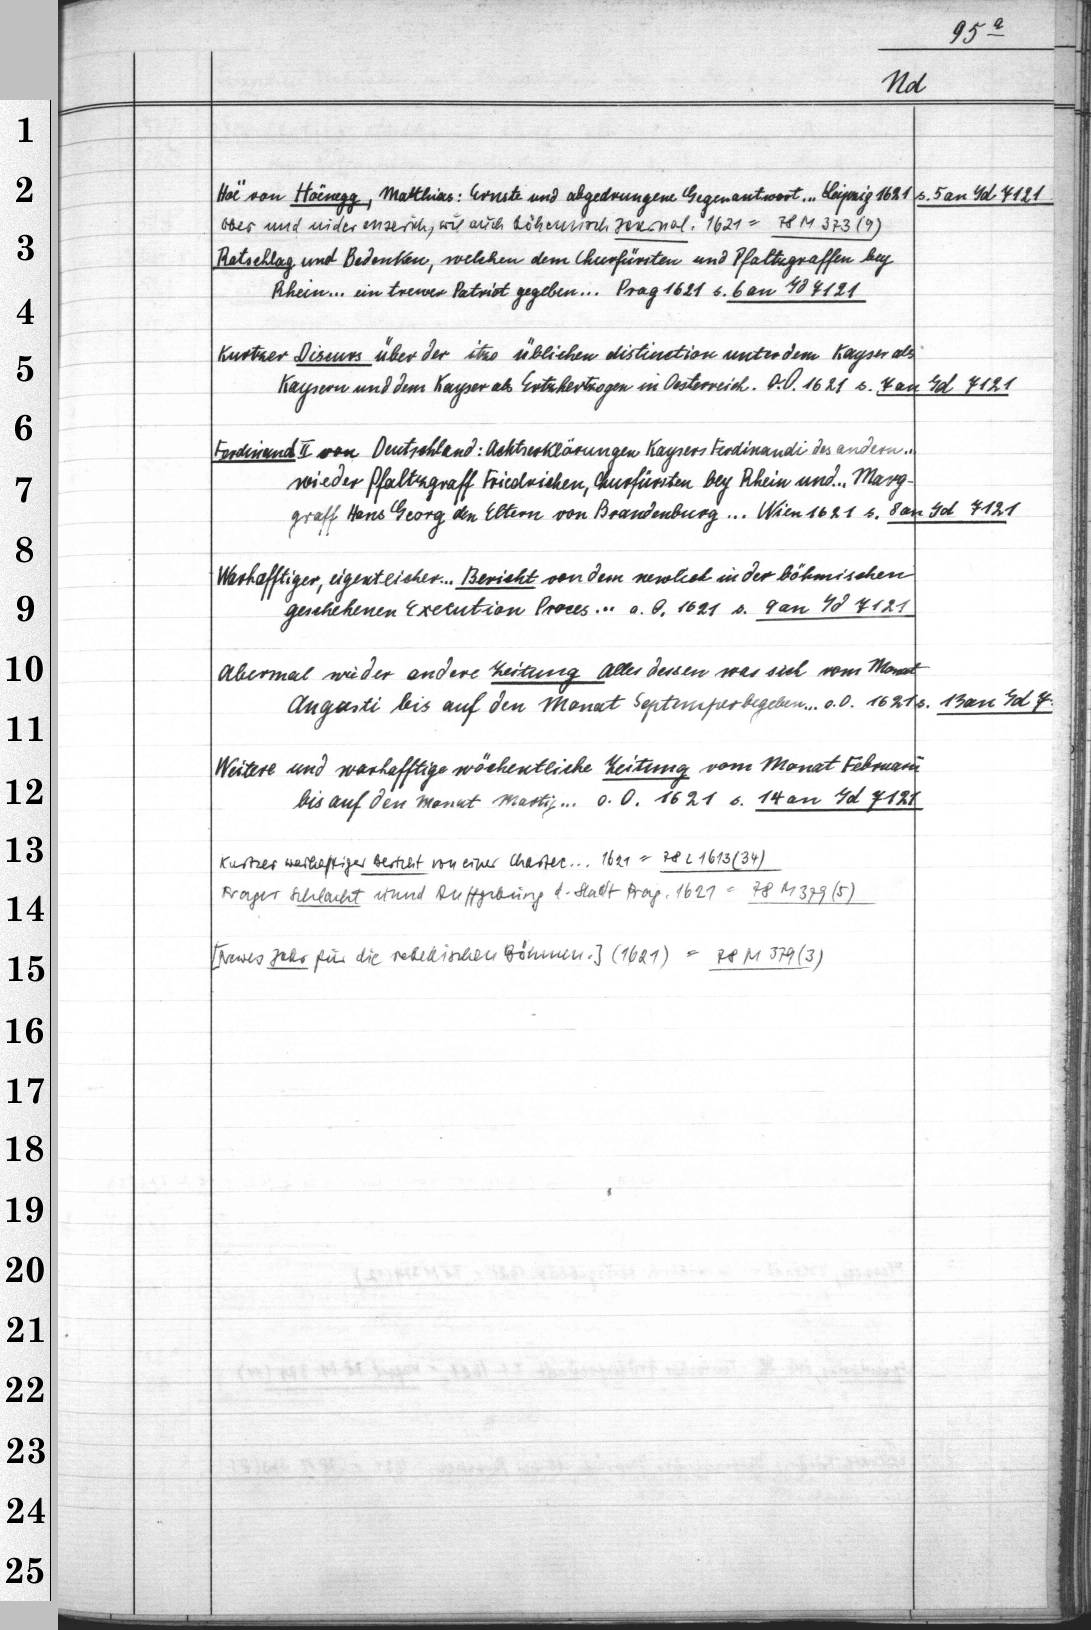 95 a
Nd
1
2
3
4
5
6
7
8
9
10
11
12
13
14
15
16
17
18
19
20
21
22
23
24
25
Hoë von Höenegg, Matthias: Ernste und abgedrungene Gegenantwort... Leipzig 1621 s. 5 an Gd 7121
ober und nider enserich, wie auch böhemisch Jornal. 1621 = 78 M 373 (9)
Ratschlag und Bedenken, welchen dem Churfürsten und Pfaltzgraffen bey
Rhein... ein trewer Patriot gegeben... Prag 1621 s. 6 an Gd 7121
Kurtzer Discurs über der itzo üblichen distinction unter dem Kayser als
Kaysern und dem Kayser als Ertzhertzogen in Oesterreich. O.O. 1621 s. 7 an Gd 7121
Ferdinand II von Deutschland: Achtserklärungen Kaysers Ferdinandi des andern...
wieder Pfaltzgraff Friedrichen, Churfürsten bey Rhein und... Marg-
graff Hans Georg den Eltern von Brandenburg ... Wien 1621 s. 8 an Gd 7121
Warhafftiger, eigentlicher... Bericht von dem newlich in der böhmischen
geschehenen Execution Proces... o. O. 1621 s. 9 an Gd 7121
Abermal wieder andere Zeitung alles dessen was sich vom Monat
Augusti bis auf den Monat Septemper begeben... o.O. 1621 s. 13 an Gd 7.
Weitere und warhafftige wöchentliche Zeitung vom Monat Februarii
bis auf den Monat Martij... o. O. 1621 s. 14 an Gd 7121
Kurtzer warhaftiger Bericht von einer Charter... 1621 = 78 L 1613 (34)
Prager Schlacht unnd Auffgebung d. Stadt Prag. 1621 = 78 M 379 (5)
[Newes Jahr für die rebellischen Böhmen.] (1621) = 78 M 379 (3)